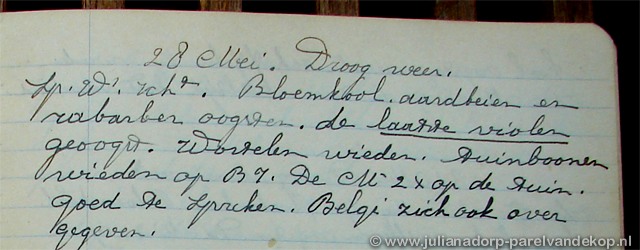 28 Mei. Droog weer.
Sp. W! zcht. Bloemkool. aardbeien en
rabarber oogsten. de laatste violen
geoogst. Wortelen wieden. tuinboonen
wieden op B7. De M 2x op de tuin.
goed te spreken. Belgi zich ook over
gegeven.
© www.julianadorp-parelvandekop.nl